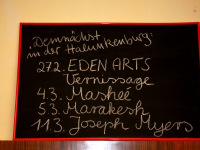 "Demnächst
in der Halunkenburg:
27.2. EDEN ARTS
Vernissage
4.3. Mashee
5.3. Marakesh
11.3. Joseph Myers